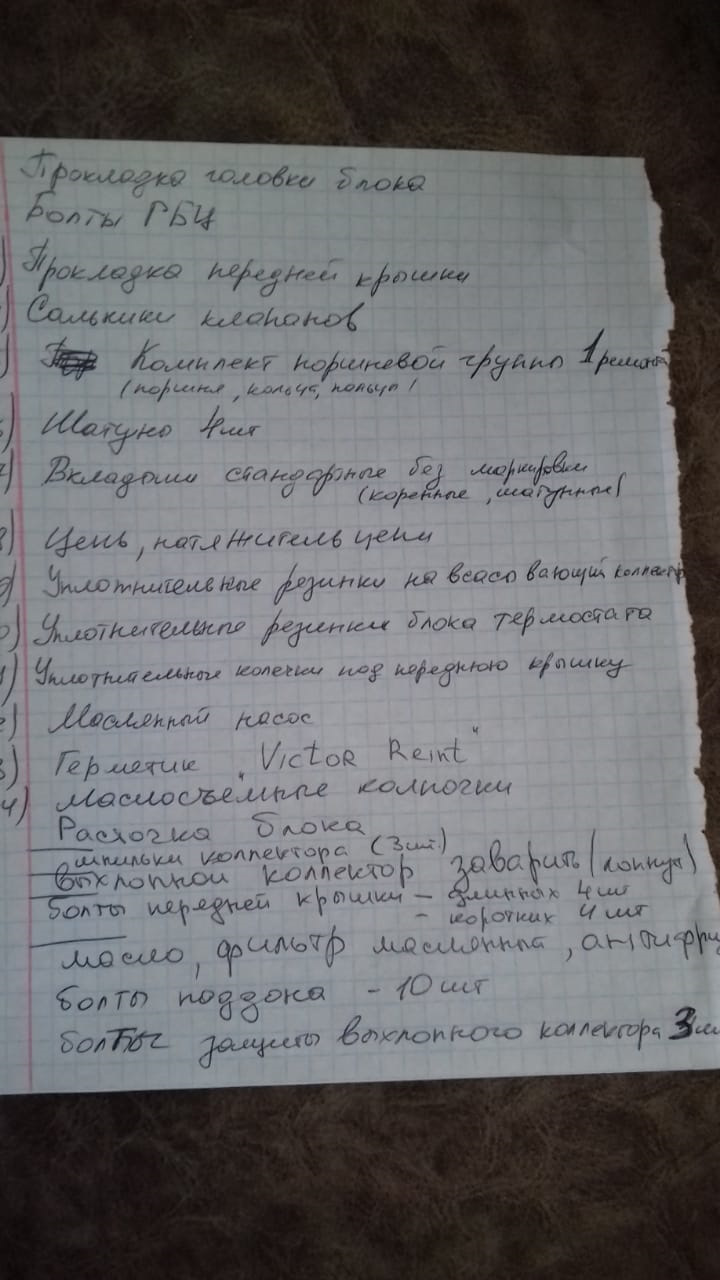 Прокладка головки блока
Болты ГБЦ
) Прокладка передней крышки
) Сальники клапанов
) Комплект поршневой группы 1 ремонт
(поршня, кольца, пальцы)
) Шатуны 4шт
7) Вкладыши стандартные без маркировки
(коренные, шатунные)
8) Цепь, натяжитель цепи
9) Уплотнительные резинки на всасывающий коллектор
0) Уплотнительные резинки блока термостата
1) Уплотнительные колечки под переднюю крышку
2) Маслянный насос
3) Герметик "Victor Reint"
4) Маслосъёмные колпочки
Расточка блока
шпильки коллектора (3шт.)
выхлопной коллектор заварить (лопнут)
болты передней крышки - длинных 4 шт
- коротких 4 шт
масло, фильтр маслянный, антифри
болты поддона - 10 шт
болты защиты выхлопного коллектора 3 ш